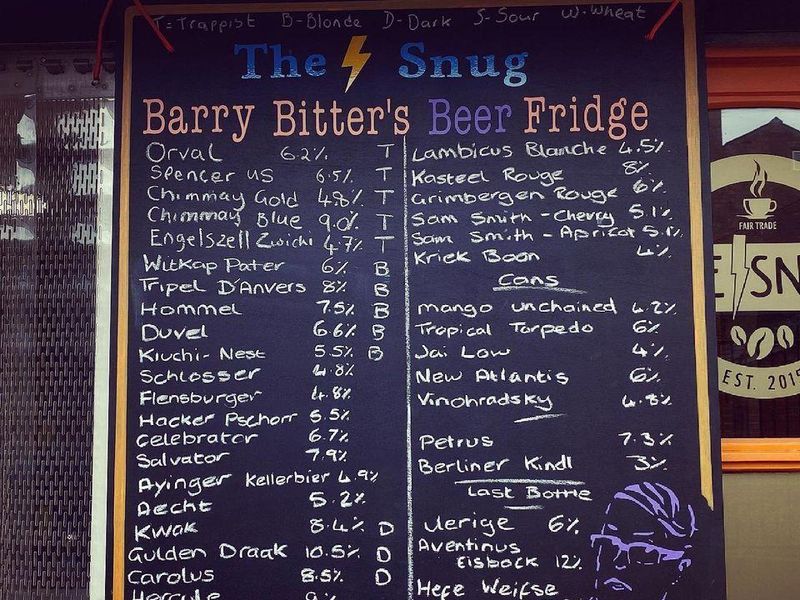 T=Trappist B-Blonde D-Dark S-Sour W-Wheat
The Snug
Barry Bitter's Beer Fridge
Orval 6.2% T
Spencer US 6.5% T
Chimmay Gold 4.8% T
Chimmay Blue 9.0% T
Engelszell Zwichl 4.7% T
Witkap Pater 6% B
Tripel D'Anvers 8% B
Hommel 7.5% B
Duvel 6.6% B
Kiuchi-Nest 5.5% B
Schlosser 4.8%
Flensburger 4.8%
Hacker Pschorr 5.5%
Celebrator 6.7%
Salvator 7.9%
Ayinger Kellerbier 4.9%
Aecht 5.2%
Kwak 8.4% D
Gulden Draak 10.5% D
Carolus 8.5% D
Hercule 9%
Lambicus Blanche 4.5%
Kasteel Rouge 8%
Grimbergen Rouge 6%
Sam Smith - Cherry 5.1%
Sam Smith - Apricot 5.1%
Kriek Boon 4%
Cans
mango unchained 4.2%
Tropical Torpedo 6%
Jai Low 4%
New Atlantis 6%
Vinohradsky 4.8%
Petrus 7.3%
Berliner Kindl 3%
Last Bottle
Uerige 6%
Aventinus
Eisbock 12%
Hefe Weisse
FAIR TRADE
E SN
EST. 2015